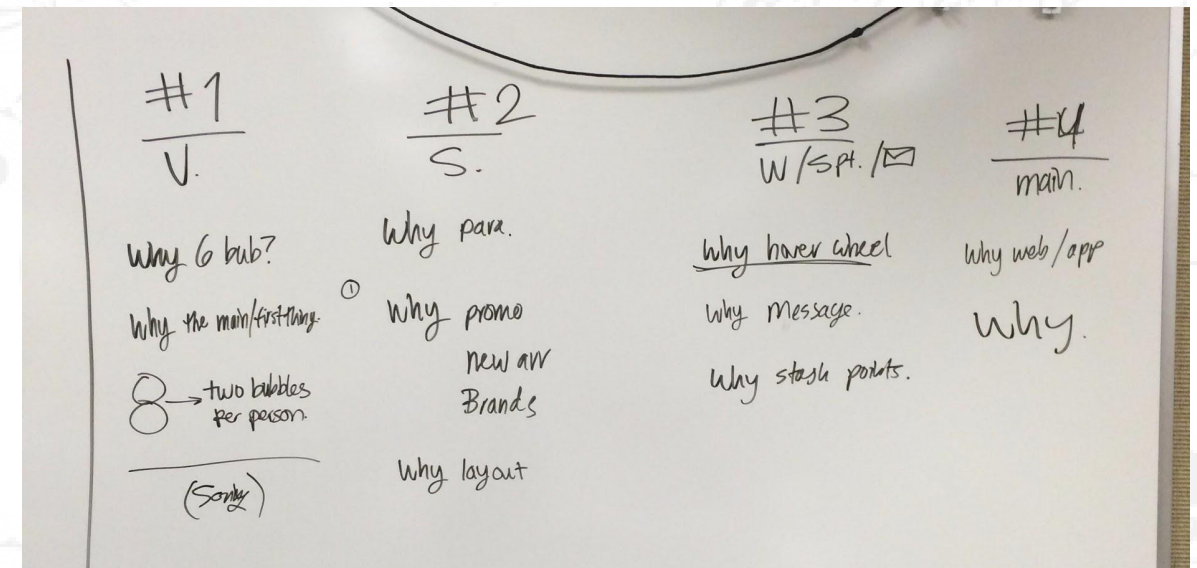 #1
V.
Why 6 bub?
Why the main/first thing.
two bubbles
per person.
#2
S.
Why para.
①
Why promo
new arr
Brands
Why layout
#3
W/Spt./
Why hover wheel
Why message.
Why stash points.
#4
main.
Why web/app
Why.